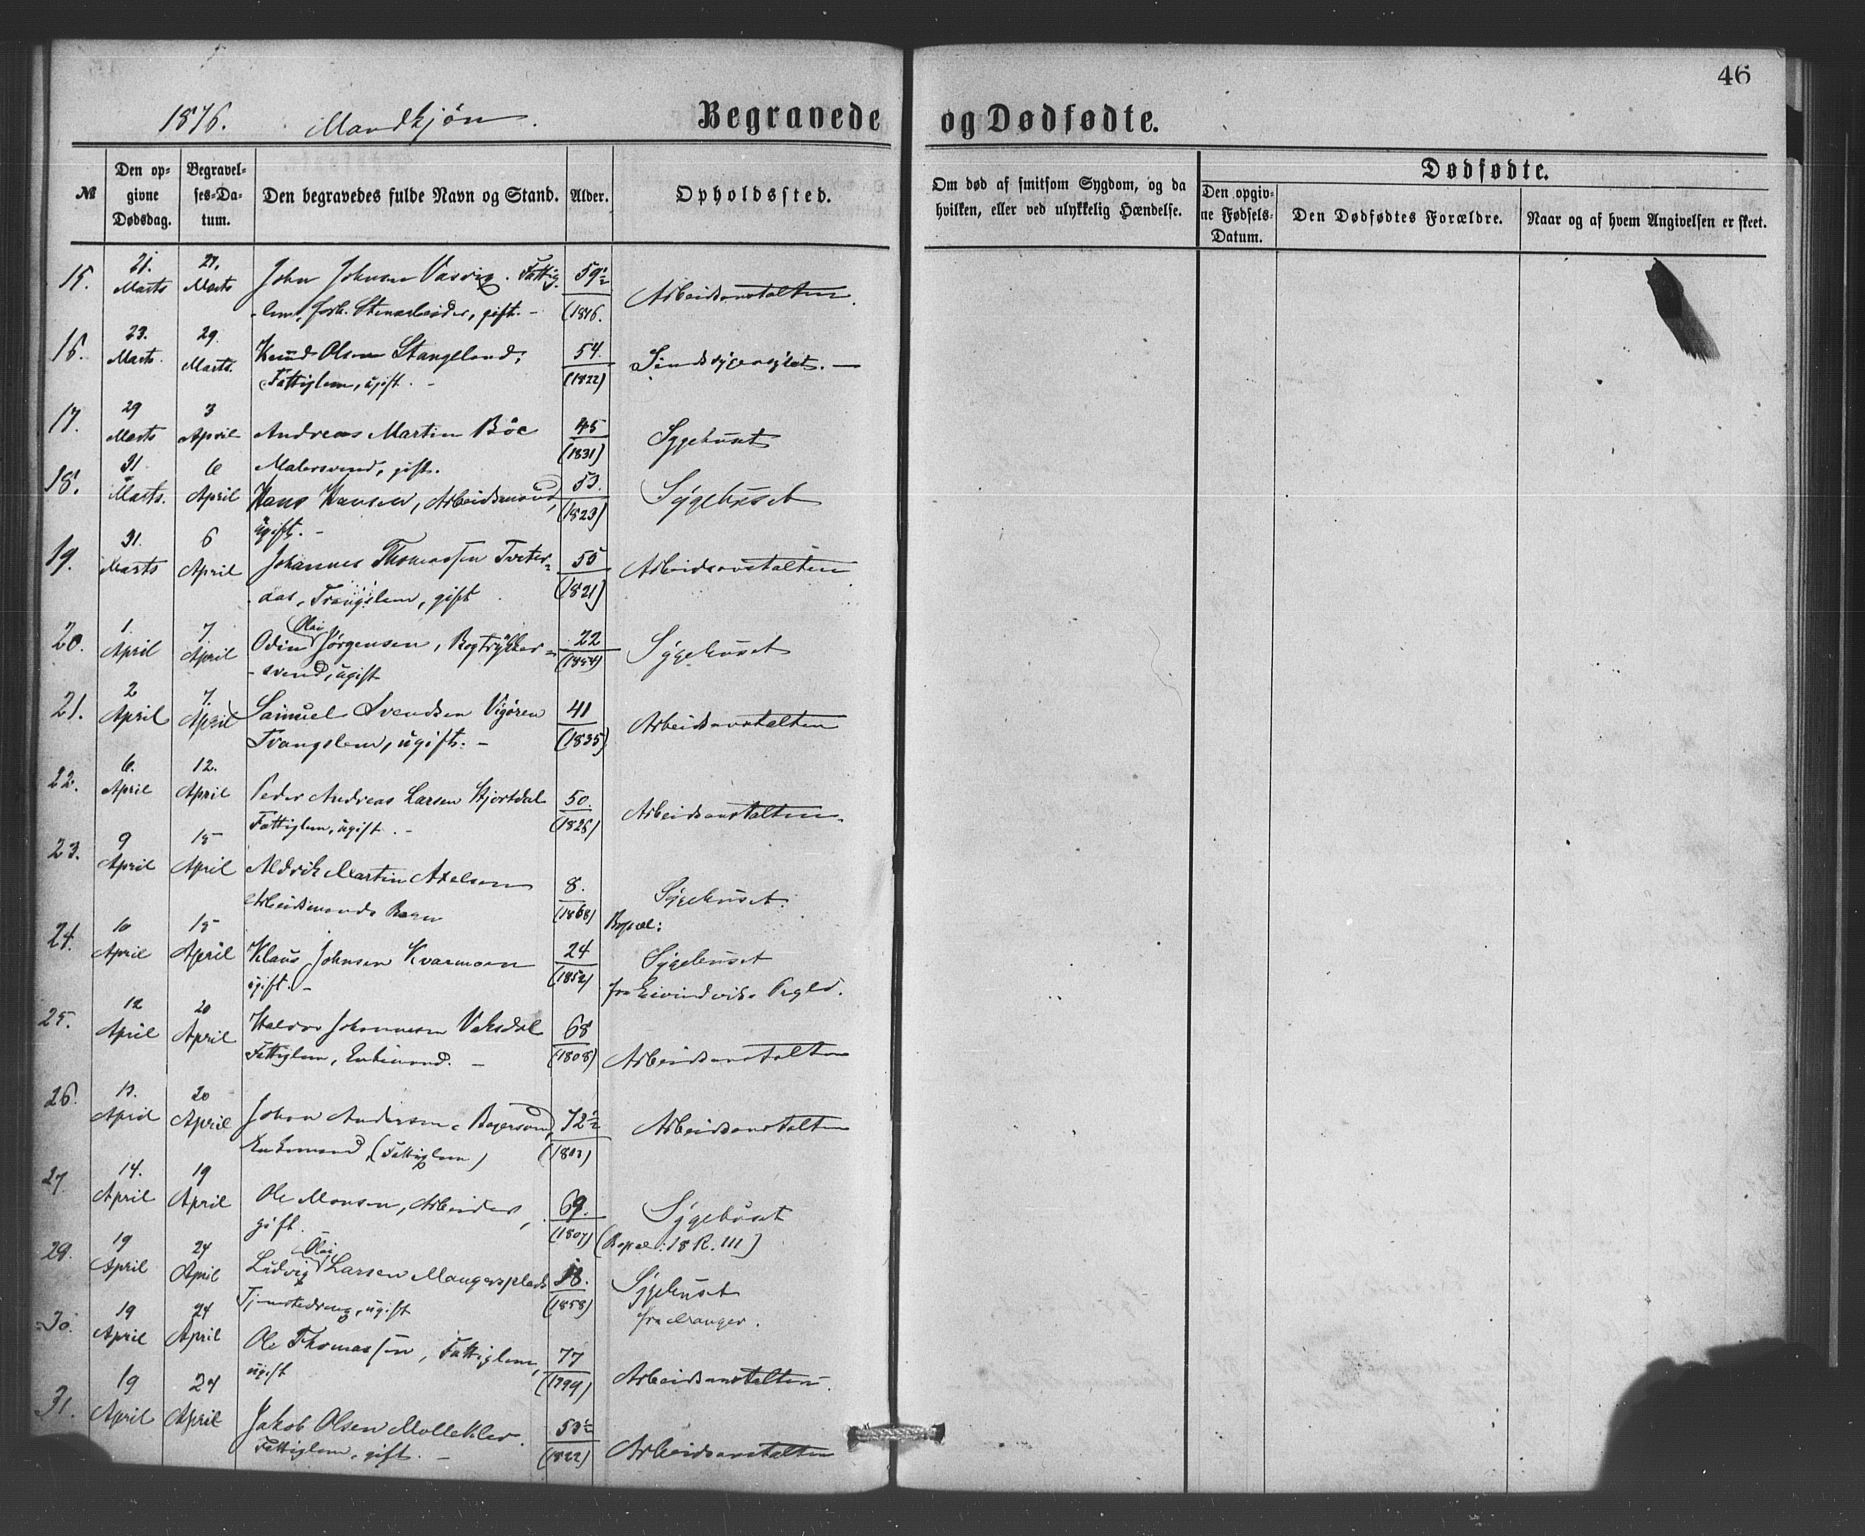 46
1876. Mandkjøn. Begravede og Dødfødte.
№
Den opgivne Dødsdag.
Begravelses-Datum.
Den begravedes fulde Navn og Stand.
Alder.
Opholdssted.
Om død af smitsom Sygdom, og da hvilken, eller ved ulykkelig Hændelse.
Dødfødte.
Den opgivne Fødsels-Datum.
Den Dødfødtes Forældre.
Naar og af hvem Angivelsen er skeet.
15. 21. Marts 27. Marts John Johnsen Vasvig. Fattig- 59½
lem, forh. Stenarbeider, gift. - (1816. Arbeidsanstalten.
16. 23. Marts 29. Marts. Knud Olsen Stangeland, 54. Sindssygeasylet. -
Fattiglem, ugift. - (1822)
17. 29 Marts 3 April Andreas Martin Böe 45 Sygehuset
Malersvend, gift. (1831)
18. 31 Marts. 6 April Hans Hansen, Arbeidsmand, 53. Sygehuset
ugift. - (1823)
19. 31. Marts 6 April Johannes Thomassen Tveter- 55 Arbeidsanstalten
aas, Tvangslem, gift (1821)
20. 1 April 7 April Odin Olai Jörgensen, Bogtrykker- 22 Sygehuset
svend, ugift (1854)
21. 2 April 7. April Samuel Svendsen Vigören 41 Arbeidsanstalten
Tvangslem, ugift. - (1835)
22. 6. April 12. April Peder Andreas Larsen Hjortdal 50. Arbeidsanstalten.
Fattiglem, ugift. - (1826)
23. 9 April 15 April Aldrik Martin Axelsen 8. Sygehuset.
Arbeidsmands Barn (1868) Bopæl:
24. 10 April 15 April Klaus Johnsen Kvarmoen 24 Sygehuset
ugift. - (1852) fra Eivindvik Prgld.
25. 12 April 20 April Haldor Johannesen Vaksdal 68
Fattiglem, Enkemand. - (1808) Arbeidsanstalten
26. 13. April 20 April Johan Andersen, 72½ Arbeidsanstalten
Enkemand, (Fattiglem) (1803)
27 14. April 19 April Ole Monsen, Arbeider, 69. Sygehuset
gift. (1807) (Bopæl: 18 R. III)
29. 19 April 24 April Ludvig Olai Larsen Mangersplads 18. Sygehuset
Tjenestedreng, ugift (1858) fra Manger.
30. 19 April 24 April Ole Thomassen, Fattiglem, 77
ugift (1799) Arbeidsanstalten.
31. 19 April 24 April Jakob Olsen 53½
Fattiglem, gift. - (1822) Arbeidsanstalten